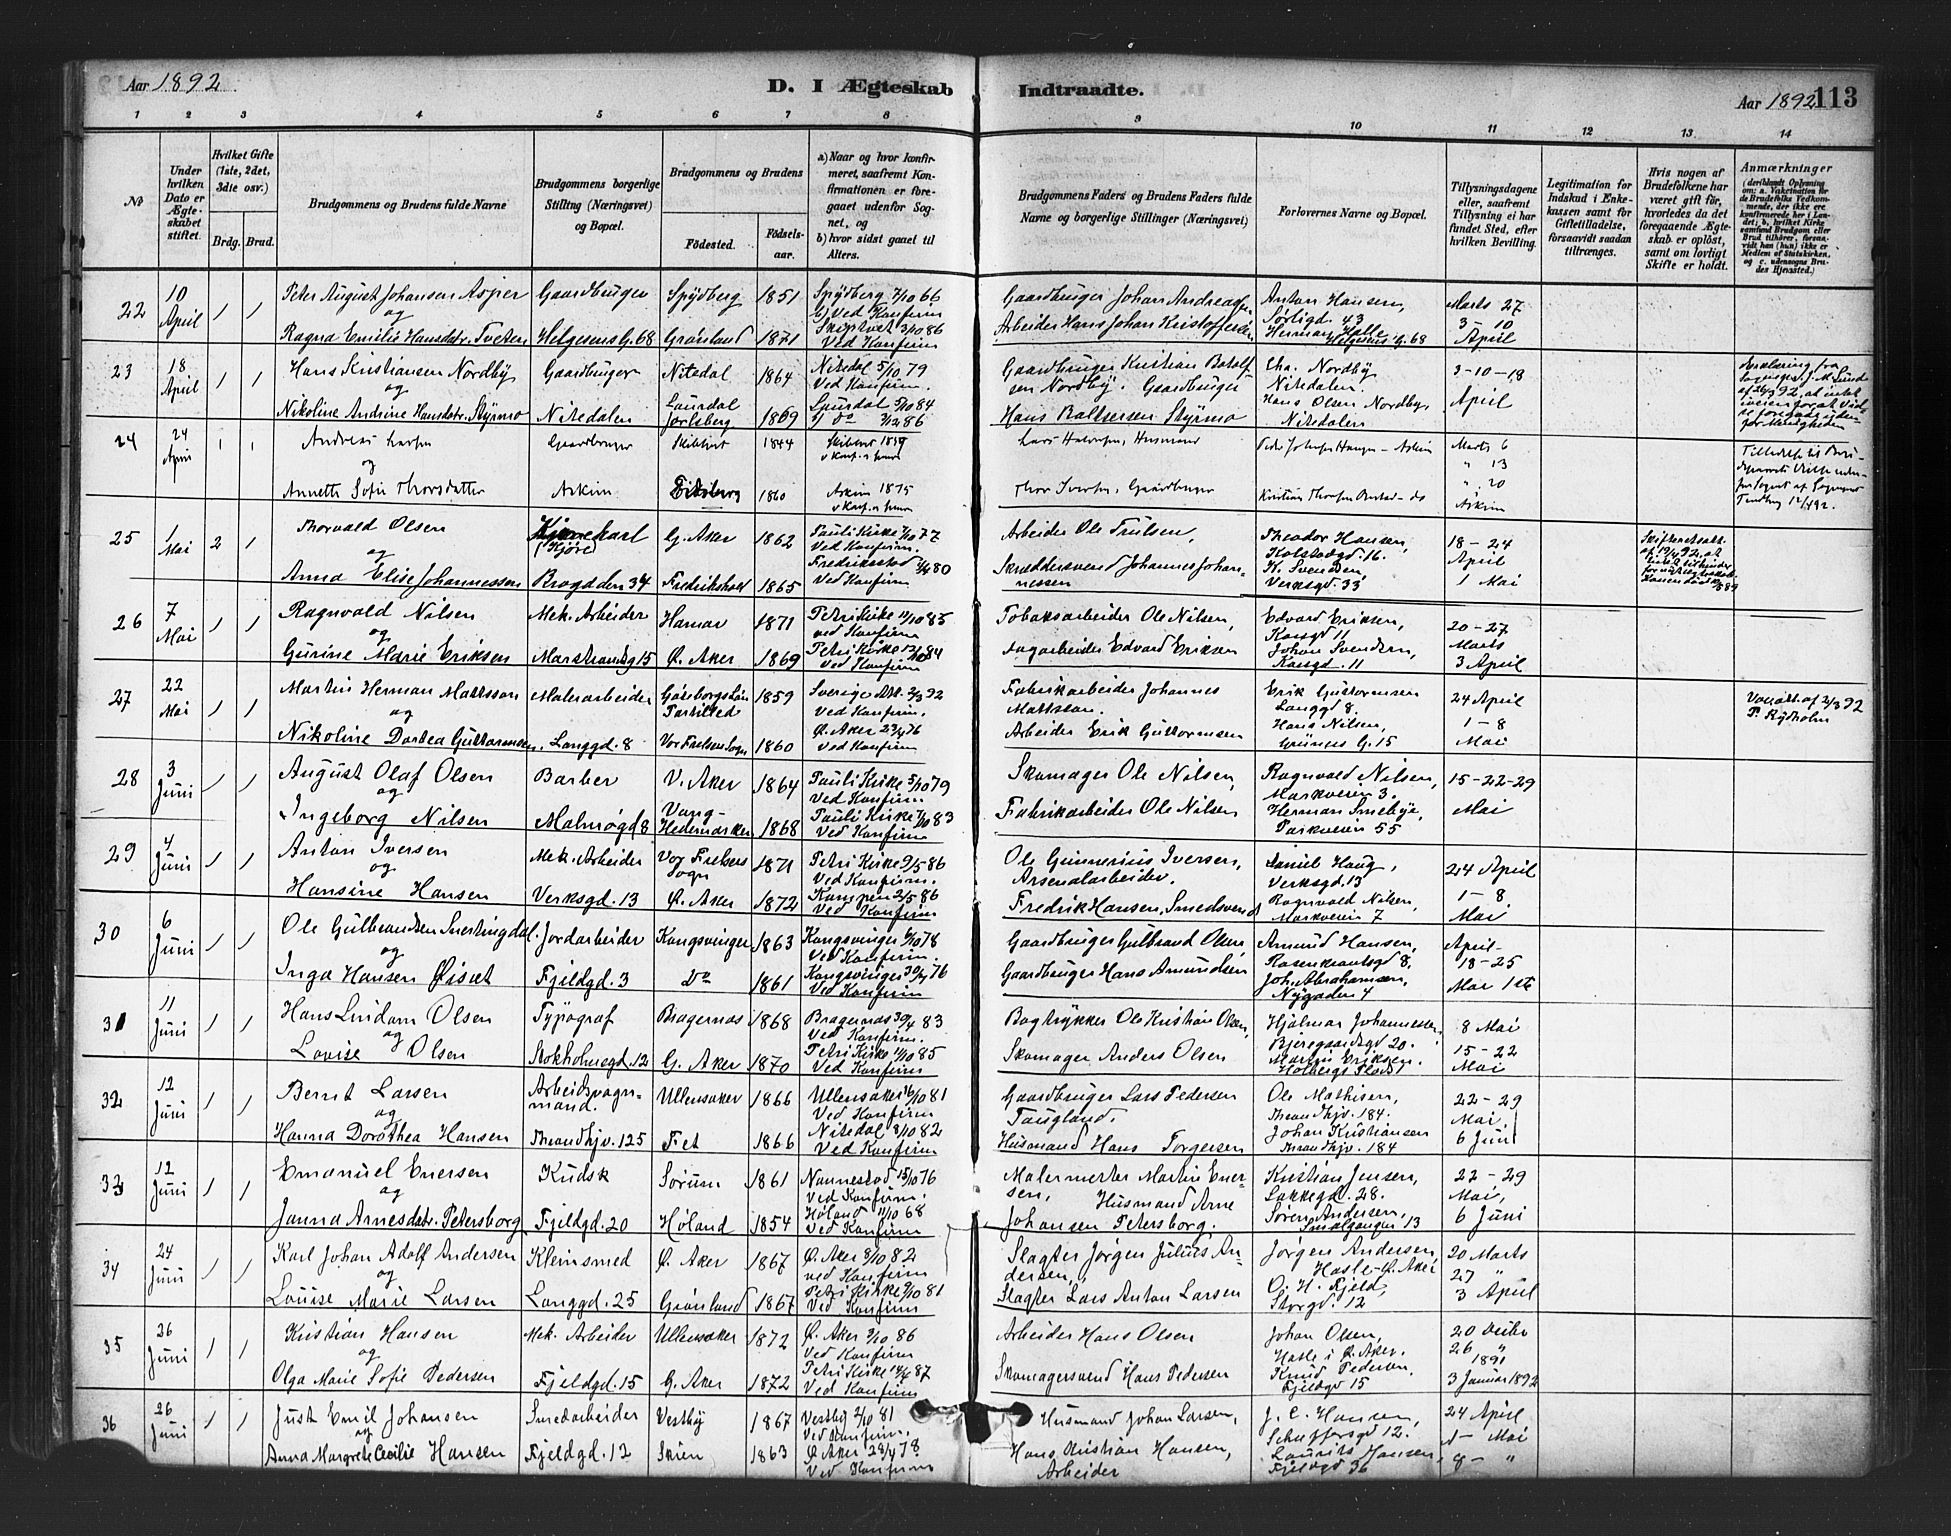 Aar 1892
D. I Ægteskab Indtraadte.
Aar 1892 113
1 2 3 4 5 6 7 8 9 10 11 12 13 14
No
Under hvilken Dato er Ægteskabet stiftet.
Hvilket Gifte (1ste, 2det, 3die osv.)
Brdg. Brud.
Brudgommens og Brudens fulde Navne
Brudgommens borgerlige Stilling (Næringsvei) og Bopæl.
Brudgommens og Brudens
Fødested. Fødselsaar.
a) Naar og hvor konfirmeret, saafremt Konfirmationen er foregaaet udenfor Sognet, og
b) hvor sidst gaaet til Alters.
Brudgommens Faders og Brudens Faders fulde Navne og borgerlige Stillinger (Næringsvei)
Forlovernes Navne og Bopæl.
Tillysningsdagene eller, saafremt Tillysning ei har fundet Sted, efter hvilken Bevilling.
Legitimation for Indskud i Enkekassen samt for Giftetilladelse, forsaavidt saadan tiltrænges.
Hvis nogen af Brudefolkene har været gift før, hvorledes da det foregaaende Ægteskab er opløst, samt om lovligt Skifte er holdt.
Anmærkninger
22 10 April 1 1 Peter August Johansen Asper Gaardbruger Spydberg 1851 Spydberg 7/10 66 Ved Konfirm
og
Ragna Emilie Hansdatr. Tveten Helgesens G. 68 Grønland 1871 Skiptvet 3/10 86 Ved Konfirm
Arbeider Hans Johan Kristoffersen
Anton Hansen,
Herman Halle Helgesens G. 68
Marts 27
3 - 10
April
23 18 April 1 1 Hans Kristiansen Nordby Gaardbruger Nitedal 1864 Nitedal 5/10 79 Ved Konfirm.
og
Nikoline Andrine Hansdatr. Styrmo Nitedalen Jarlsberg 1869
Hans Baltsersen Styrmo
Cha. Nordby Nitedalen.
Hans Olsen Nordby, Nitedalen
3-10-18
April
24 24 April 1 1 Andreas Larsen Gaardbruger 1844
og
Annette Sofie Thorsdatter Askim 1860 Askim 1875
Marts 6
" 13
" 20
Askim
25 1 Mai 2 1 Thorvald Olsen G. Aker 1862 Pauli Kirke 7/10 77 Ved Konfirm.
og
Anna Elise Johannessen Brogaden 34 Fredrikshald 1865 Fredriksstad Ved Konfirm
Arbeider Ole Trulsen,
Skræddersvend Johannes Johannessen
Theodor Hansen,
K. Svendsen Verksgd. 33
18 - 24
April
1 Mai
26 7 Mai 1 1 Ragnvald Nilsen Mek. Arbeider Hamar 1871 Petri Kirke 11/10 85 ved Konfirm
og
Gurine Marie Eriksen Marstrandsg 15 Ø. Aker 1869 Petri Kirke 12/10 84 Ved Konfirm
Tobaksarbeider Ole Nilsen,
Sagarbeider Edvard Eriksen
Edvard Eriksen, Korsgd 11
Johan Svendsen, Korsgd. 11
20-27
Marts
3 April
27 22 Mai 1 1 Martin Herman Mattsson Malerarbeider 1859 Ved Konfirm.
og
Nikoline Dortea Guttormsen, Langgd. 8 Vor Frelsers Sogn 1860 Ø. Aker 23/4 76 Ved Konfirm
Fabrikarbeider Johannes Mattsson.
Arbeider Erik Guttormsen
Erik Guttormsen Langgd 8.
Hans Nilsen, Grüners G. 15
24 April
1-8
Mai
P. Rydholm
28 3 Juni 1 1 August Olaf Olsen Barber V. Aker 1864 Pauli Kirke 5/10 79 Ved Konfirm.
og
Ingeborg Nilsen Malmøgd 8 Vang Hedemarken 1868 Pauli Kirke 7/10 83 Ved Konfirm
Skomager Ole Nilsen,
Fabrikarbeider Ole Nilsen
Ragnvald Nilsen, Markveien 3.
Herman Smebye, Parkveien 55
15-22-29
Mai
29 4 Juni 1 1 Anton Iversen Mek. Arbeider Vor Frelsers Sogn 1871 Petri Kirke 9/5 86 Ved Konfirm.
og
Hansine Hansen Verksgd. 13 Ø. Aker 1872 Kampen 2/5 86 Ved Konfirm
Ole Gunnerius Iversen, Arsenalarbeider.
Fredrik Hansen, Smedsvend
Daniel Haug, Verksgd. 13
Ragnvald Nilsen, Markveien 7
24 April
1-8
Mai
30 6 Juni 1 1 Ole Gulbrandsen Jordarbeider Kongsvinger 1863 Kongsvinger 6/10 78 Ved Konfirm.
og
Inga Hansen Øiset Fjeldgd. 3 Do 1861 Kongsvinger Ved Konfirm
Gaardbruger Gulbrand Olsen
Gaardbruger Hans Amundsen
Amund Hansen, Rosenkrantsgd 8.
Joh. Abrahamsen, Nygaden 4
April-
18-25
Mai 1ste
31 11 Juni 1 1 Hans Lindam Olsen Typograf Bragernæs 1868 Bragernæs 30/4 83 Ved Konfirm.
og
Lovise Olsen Stokholmsgd. 12 G. Aker 1870 Petri Kirke 11/10 85 Ved Konfirm
Bogtrykker Ole Kristian Olsen,
Skomager Anders Olsen
Hjalmar Johannessen, Bjeregaardsgd 20.
Martin Eriksen. Holbergs Plads 1
8 Mai
15-22
Mai
32 12 Juni 1 1 Bernt Larsen Arbeidsvognmand. Ullensaker 1866 Ullensaker 16/10 81 Ved Konfirm.
og
Hanna Dorothea Hansen Trondhjv. 125 Fet 1866 Nitedal 8/10 82 Ved Konfirm
Gaardbruger Lars Pedersen Taugland.
Husmand Hans Torgersen
Ole Mathisen, Trondhjv. 184.
Johan Kristiansen Trondhjv. 184
22-29
Mai,
6 Juni
33 12 Juni 1 1 Emanuel Enersen Kudsk Sørum 1861 Nannestad 15/10 76 Ved Konfirm.
og
Janna Arnesdatr. Petersborg Fjeldgd. 20 Høland 1854 Høland 11/10 68 Ved Konfirm
Malermester Martin Enersen,
Husmand Arne Johansen Petersborg.
Kristian Jensen, Lakkegd. 28.
Søren Andersen, Smalgangen 13
22-29
Mai,
6 Juni
34 24 Juni 1 1 Karl Johan Adolf Andersen Kleinsmed Ø. Aker 1867 Ø. Aker 8/10 82 ved Konfirm
og
Louise Marie Larsen Langgd. 25 Grønland 1867 Petri Kirke 9/10 81 Ved Konfirm
Slagter Jørgen Julius Andersen,
Slagter Lars Anton Larsen
Jørgen Andersen Hasle - Ø. Aker
O. H. Fjeld, Storgd. 12
20 Marts
27 "
3 April
35 26 Juni 1 1 Kristian Hansen Mek. Arbeider Ullensaker 1872 Ø. Aker 3/10 86 Ved Konfirm
og
Olga Marie Sofie Pedersen Fjeldgd. 15 G. Aker 1872 Petri Kirke 14/4 87 Ved Konfirm
Arbeider Hans Olsen
Skomagersvend Hans Pedersen
Johan Olsen, Hasle i Ø. Aker.
Knud Pedersen, Fjeldgd 15
20 Decbr
26 "
1891
3 Januar 1892
36 26 Juni 1 1 Just Emil Johansen Smedarbeider Vestby 1867 Vestby 2/10 81 Ved Konfirm.
og
Anna Margrete Cecilie Hansen Fjeldgd. 12 Skien 1863 Ø. Aker 28/4 78 Ved Konfirm
Husmand Johan Larsen,
Hans Kristian Hansen, Arbeider
J. C. Hansen, Schuffersgd 12.
Laurits Hansen, Fjeldgd 36
24 April,
1 - Mai
8 - "